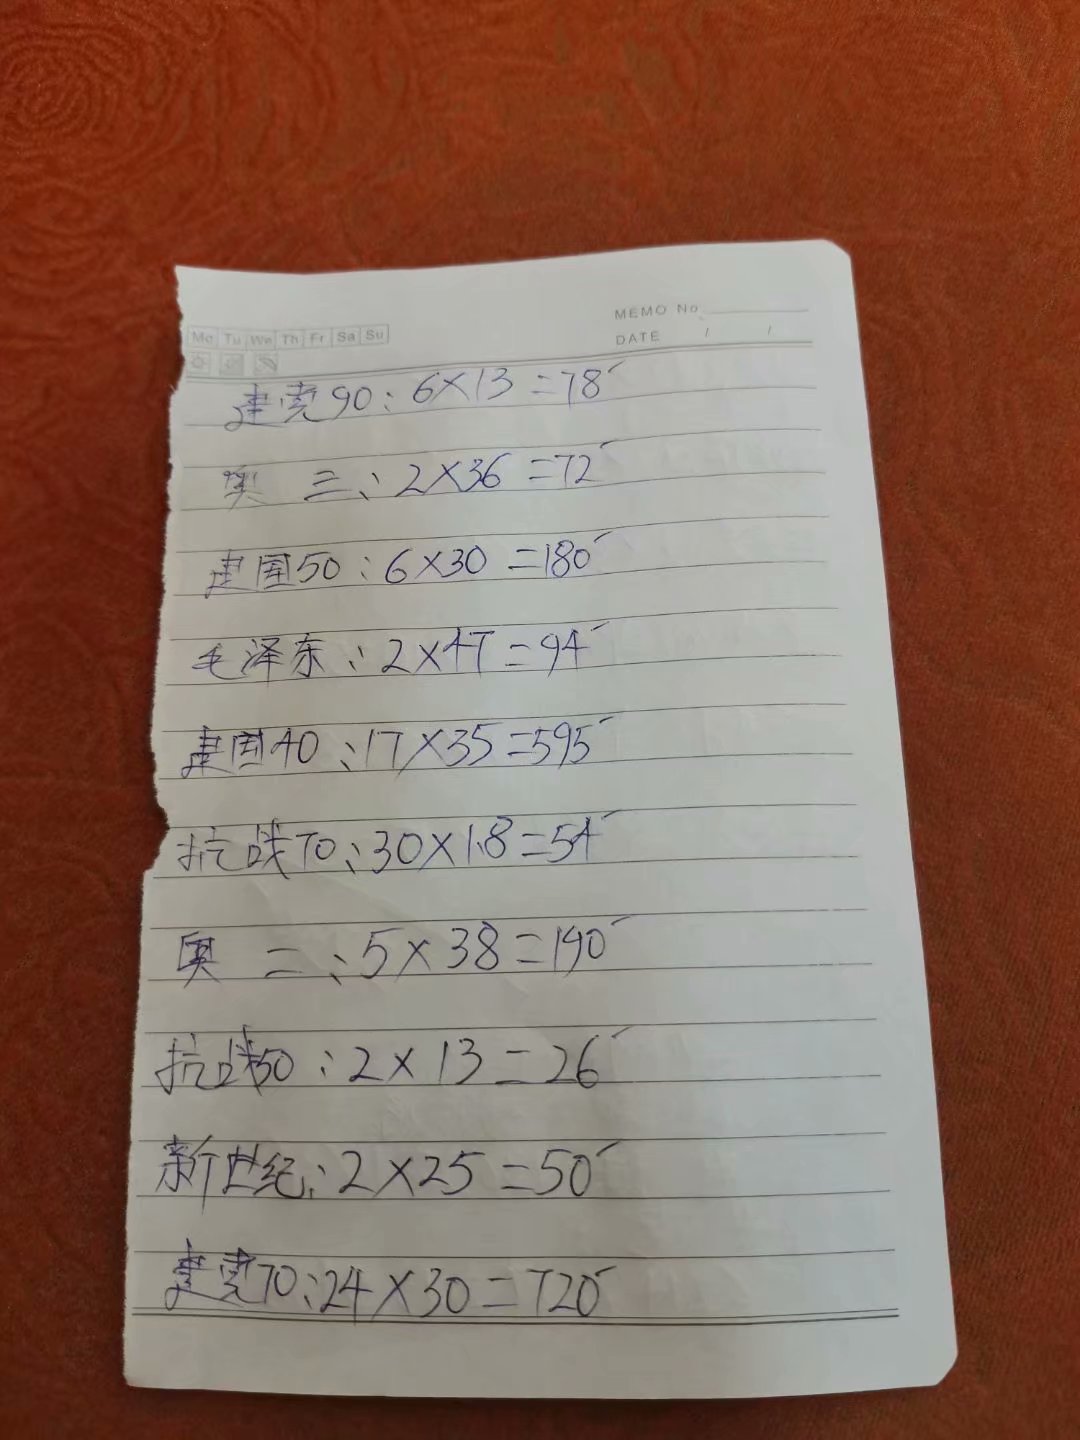 MEMO No
Mo Tu We Th Fr Sa Su
DATE / /
建党90:6×13=78
奥三:2×36=72
建国50:6×30=180
毛泽东:2×47=94
建国40:17×35=595
抗战70:30×1.8=54
奥二:5×38=190
抗战50:2×13=26
新世纪:2×25=50
建党70:24×30=720